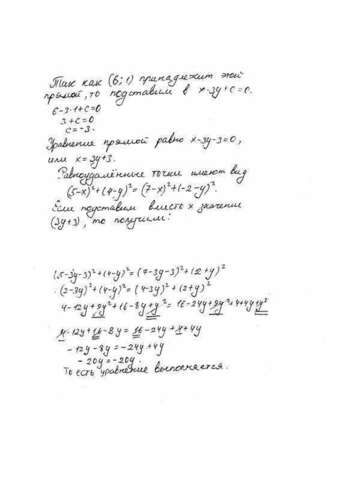 Так как (6;1) принадлежит этой
прямой, то подставим в x-3y+c=0.
6-3·1+c=0
3+c=0
c=-3.
Уравнение прямой равно x-3y-3=0,
или x=3y+3.
Равноудалённые точки имеют вид
(5-x)²+(4-y)²=(7-x)²+(-2-y)².
Если подставим вместо x значение
(3y+3), то получим:
(5-3y-3)²+(4-y)²=(7-3y-3)²+(2+y)²
(2-3y)²+(4-y)²=(4-3y)²+(2+y)²
4-12y+9y²+16-8y+y²=16-24y+9y²+4+4y+y²
4-12y+16-8y=16-24y+4+4y
-12y-8y=-24y+4y
-20y=-20y.
То есть уравнение выполняется.